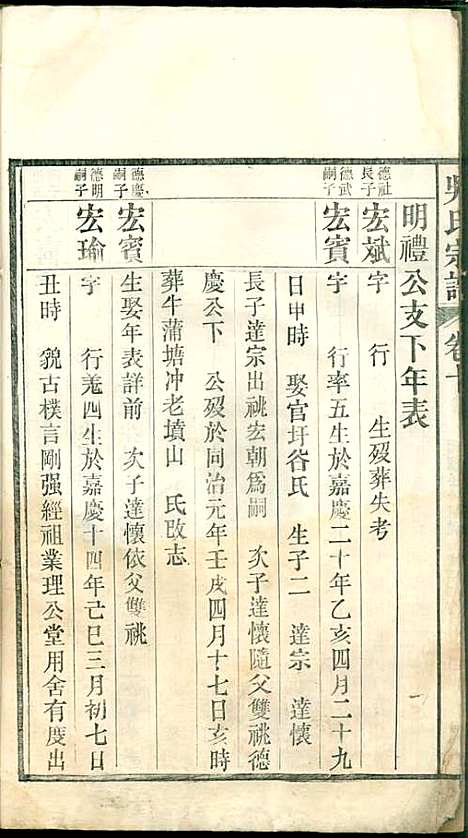 吳氏宗譜 卷十
明禮公支下年表
德社長子 宏斌 字 行 生歿葬失考
德武嗣子 宏賓 字 行率五生於嘉慶二十年乙亥四月二十九
日申時 娶官圩谷氏 生子二 達宗 達懷
長子達宗出祧宏朝爲嗣 次子達懷隨父雙祧德
慶公下 公歿於同治元年壬戌四月十七日亥時
葬牛蒲塘冲老墳山 氏改志
德慶嗣子 宏賓 生娶年表詳前 次子達懷依父雙祧
德明嗣子 宏瑜 字 行羗四生於嘉慶十四年己巳三月初七日
丑時 貌古樸言剛强經祖業理公堂用舍有度出